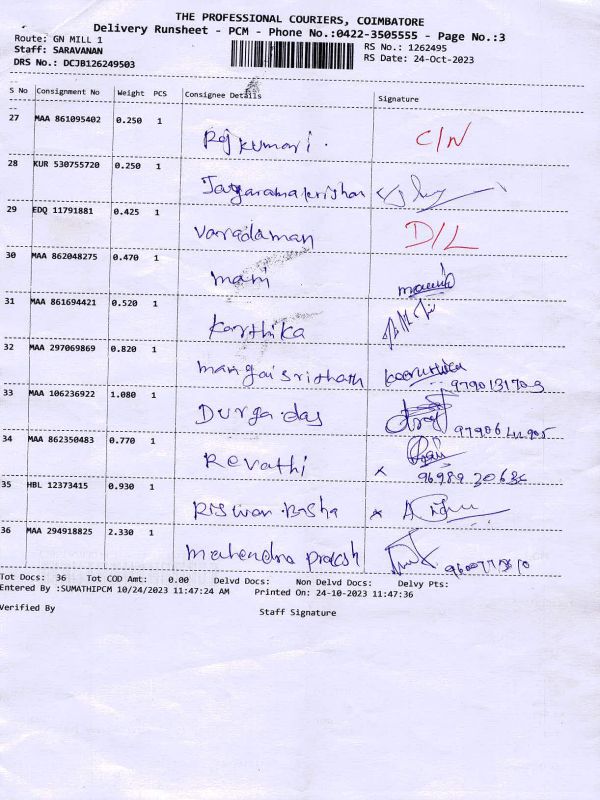 THE PROFESSIONAL COURIERS, COIMBATORE
Delivery Runsheet - PCM - Phone No.:0422-3505555 - Page No.:3
Route: GN MILL 1
RS No.: 1262495
Staff: SARAVANAN
RS Date: 24-Oct-2023
DRS No.: DCJB126249503
S No Consignment No Weight PCS Consignee Details Signature
27 MAA 861095402 0.250 1 Rajkumari. C/N
28 KUR 530755720 0.250 1 Jayaramakrishnan
29 EDQ 11791881 0.425 1 Varadaman D/L
30 MAA 862048275 0.470 1 mani
31 MAA 861694421 0.520 1 Karthika
32 MAA 297069869 0.820 1
33 MAA 106236922 1.080 1 Durga das
34 MAA 862350483 0.770 1 Revathi
35 HBL 12373415 0.930 1 Riswan Basha
36 MAA 294918825 2.330 1 Mahendra prakash
Tot Docs: 36 Tot COD Amt: 0.00 Delvd Docs: Non Delvd Docs: Delvy Pts:
Entered By :SUMATHIPCM 10/24/2023 11:47:24 AM Printed On: 24-10-2023 11:47:36
Verified By Staff Signature